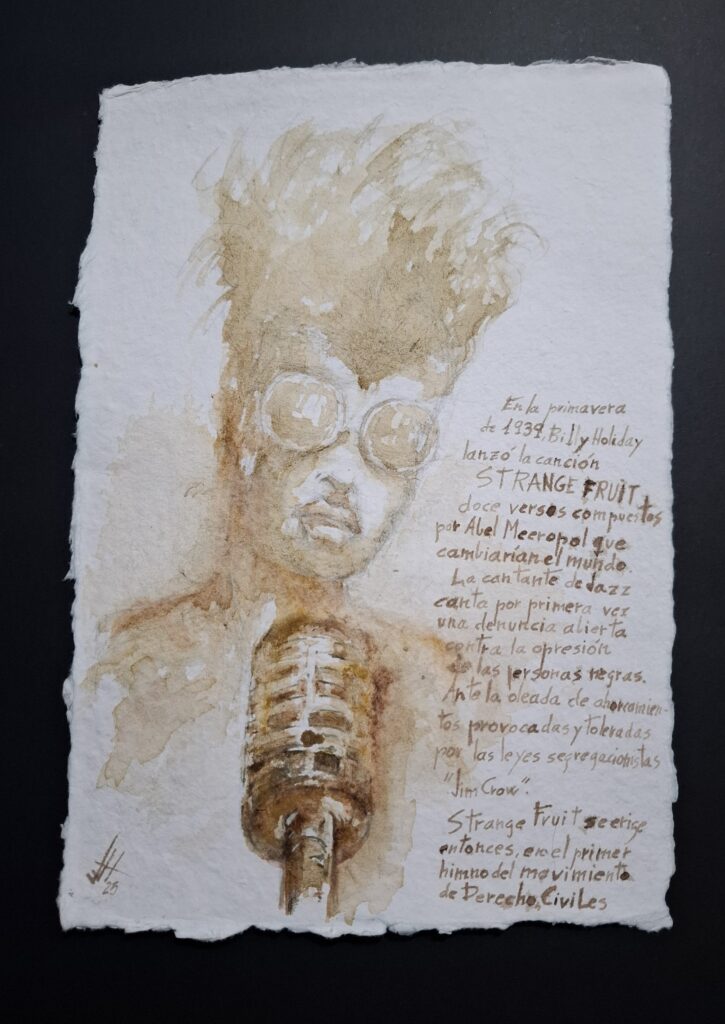 En la primavera
de 1939, Billy Holiday
lanzó la canción
STRANGE FRUIT,
doce versos compuestos
por Abel Meeropol que
cambiarían el mundo.
La cantante de Jazz
canta por primera vez
una denuncia abierta
contra la opresión
de las personas negras.
Ante la oleada de ahorcamien-
tos provocadas y toleradas
por las leyes segregacionistas
"Jim Crow".
Strange Fruit se erige
entonces, en el primer
himno del movimiento
de Derecho, Civiles
25